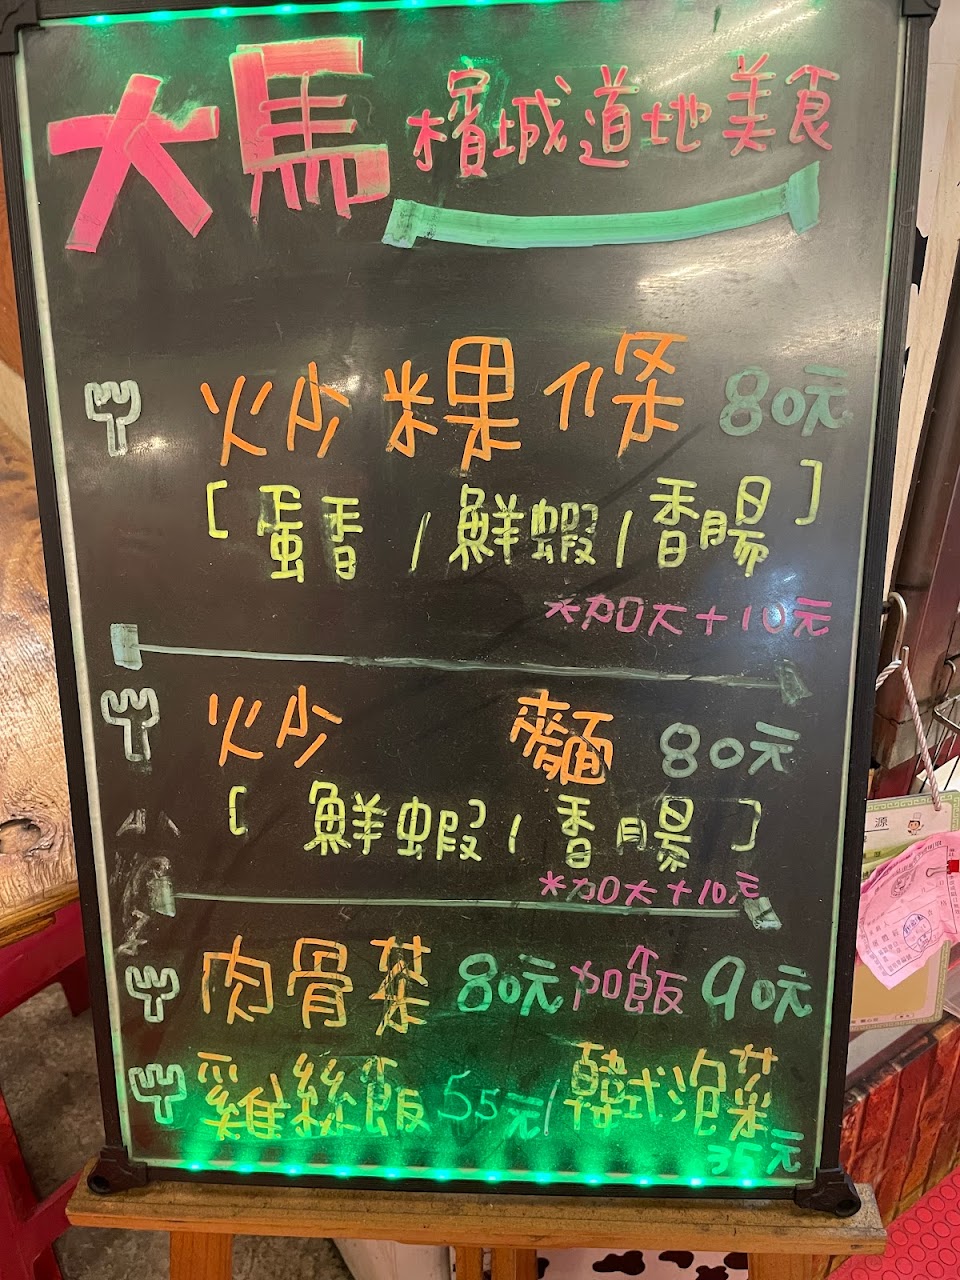 大馬 檳城道地美食
炒粿條 80元
[蛋香/鮮蝦/香腸]
*加大+10元
炒 麵 80元
[鮮蝦/香腸]
*加大+10元
肉骨茶 80元 加飯 90元
雞絲飯 55元/韓式泡菜
35元
源